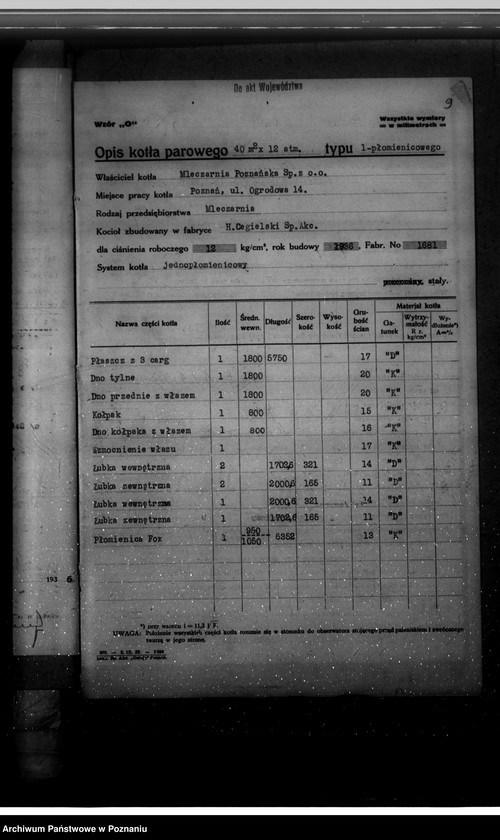 Do akt Województwa
9
Wzór „O”
Wszystkie wymiary
w milimetrach
Opis kotła parowego 40 m² x 12 atm. typu 1-płomienicowego
Właściciel kotła Mleczarnia Poznańska Sp.z o.o.
Miejsce pracy kotła Poznań, ul. Ogrodowa 14.
Rodzaj przedsiębiorstwa Mleczarnia
Kocioł zbudowany w fabryce H.Cegielski Sp.Akc.
dla ciśnienia roboczego 12 kg/cm², rok budowy 1936, Fabr. No 1681
System kotła jednopłomienicowy
przenośny, stały.
Nazwa części kotła Ilość Średn. wewn. Długość Szerokość Wysokość Grubość ścian Materjał kotła
Gatunek Wytrzymałość R z. kg/cm² Wydłużenie*) A=%
Płaszcz z 3 carg 1 1800 5750 17 "D"
Dno tylne 1 1800 20 "K"
Dno przednie z włazem 1 1800 20 "K"
Kołpak 1 800 15 "K"
Dno kołpaka z włazem 1 800 16 "K"
Wzmocnienie włazu 1 17 "K"
Łubka wewnętrzna 2 1702,6 321 14 "D"
Łubka zewnętrzna 2 2000,6 165 11 "D"
Łubka wewnętrzna 1 2000,6 321 14 "D"
Łubka zewnętrzna 1 1702,6 165 11 "D"
Płomienica Fox 1 950/1050 5352 13 "K"
193 6
*) przy wzorcu l = 11,3 √ F.
UWAGA: Położenie wszystkich części kotła rozumie się w stosunku do obserwatora stojącego przed paleniskiem i zwróconego
twarzą w jego stronę.
Archiwum Państwowe w Poznaniu